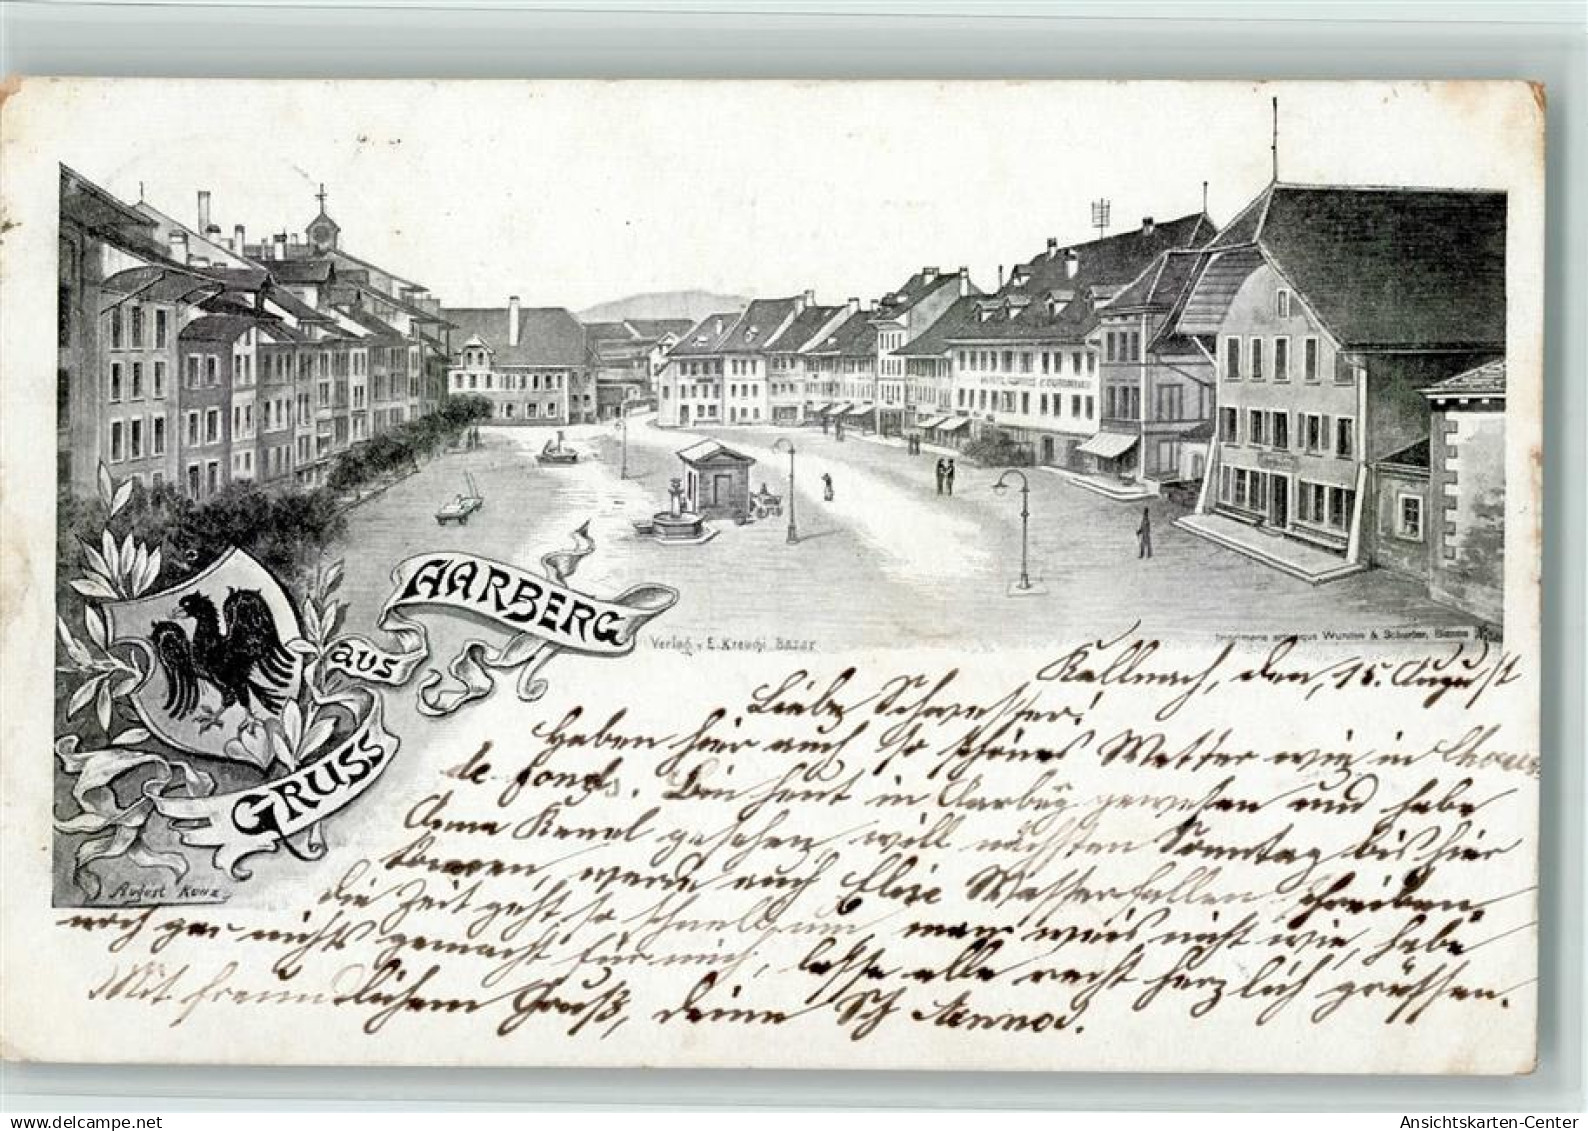 HOTEL COURONNE
GRUSS
aus
AARBERG
August Kunz
Verlag v. E. Kreuchi Bazar
Wunden & Schurter, Bienne
Kallnach, den, 15. August
Liebe Schwester!
Haben hier auch so schönes Wetter wie in Chaux
de fonds. Bin heut in Aarberg gewesen und habe
Anna gesehen, will nächsten Sonntag bis hier
kommen, werde auch Elise Wasserfallen schreiben,
die Zeit geht so schnell um, man weis nicht wie, habe
noch gar nichts gemacht für mich, lasse alle recht herzlich grüssen.
Mit freundlichem Gruß, deine Sch Anna.
delcampe.net
Ansichtskarten-Center